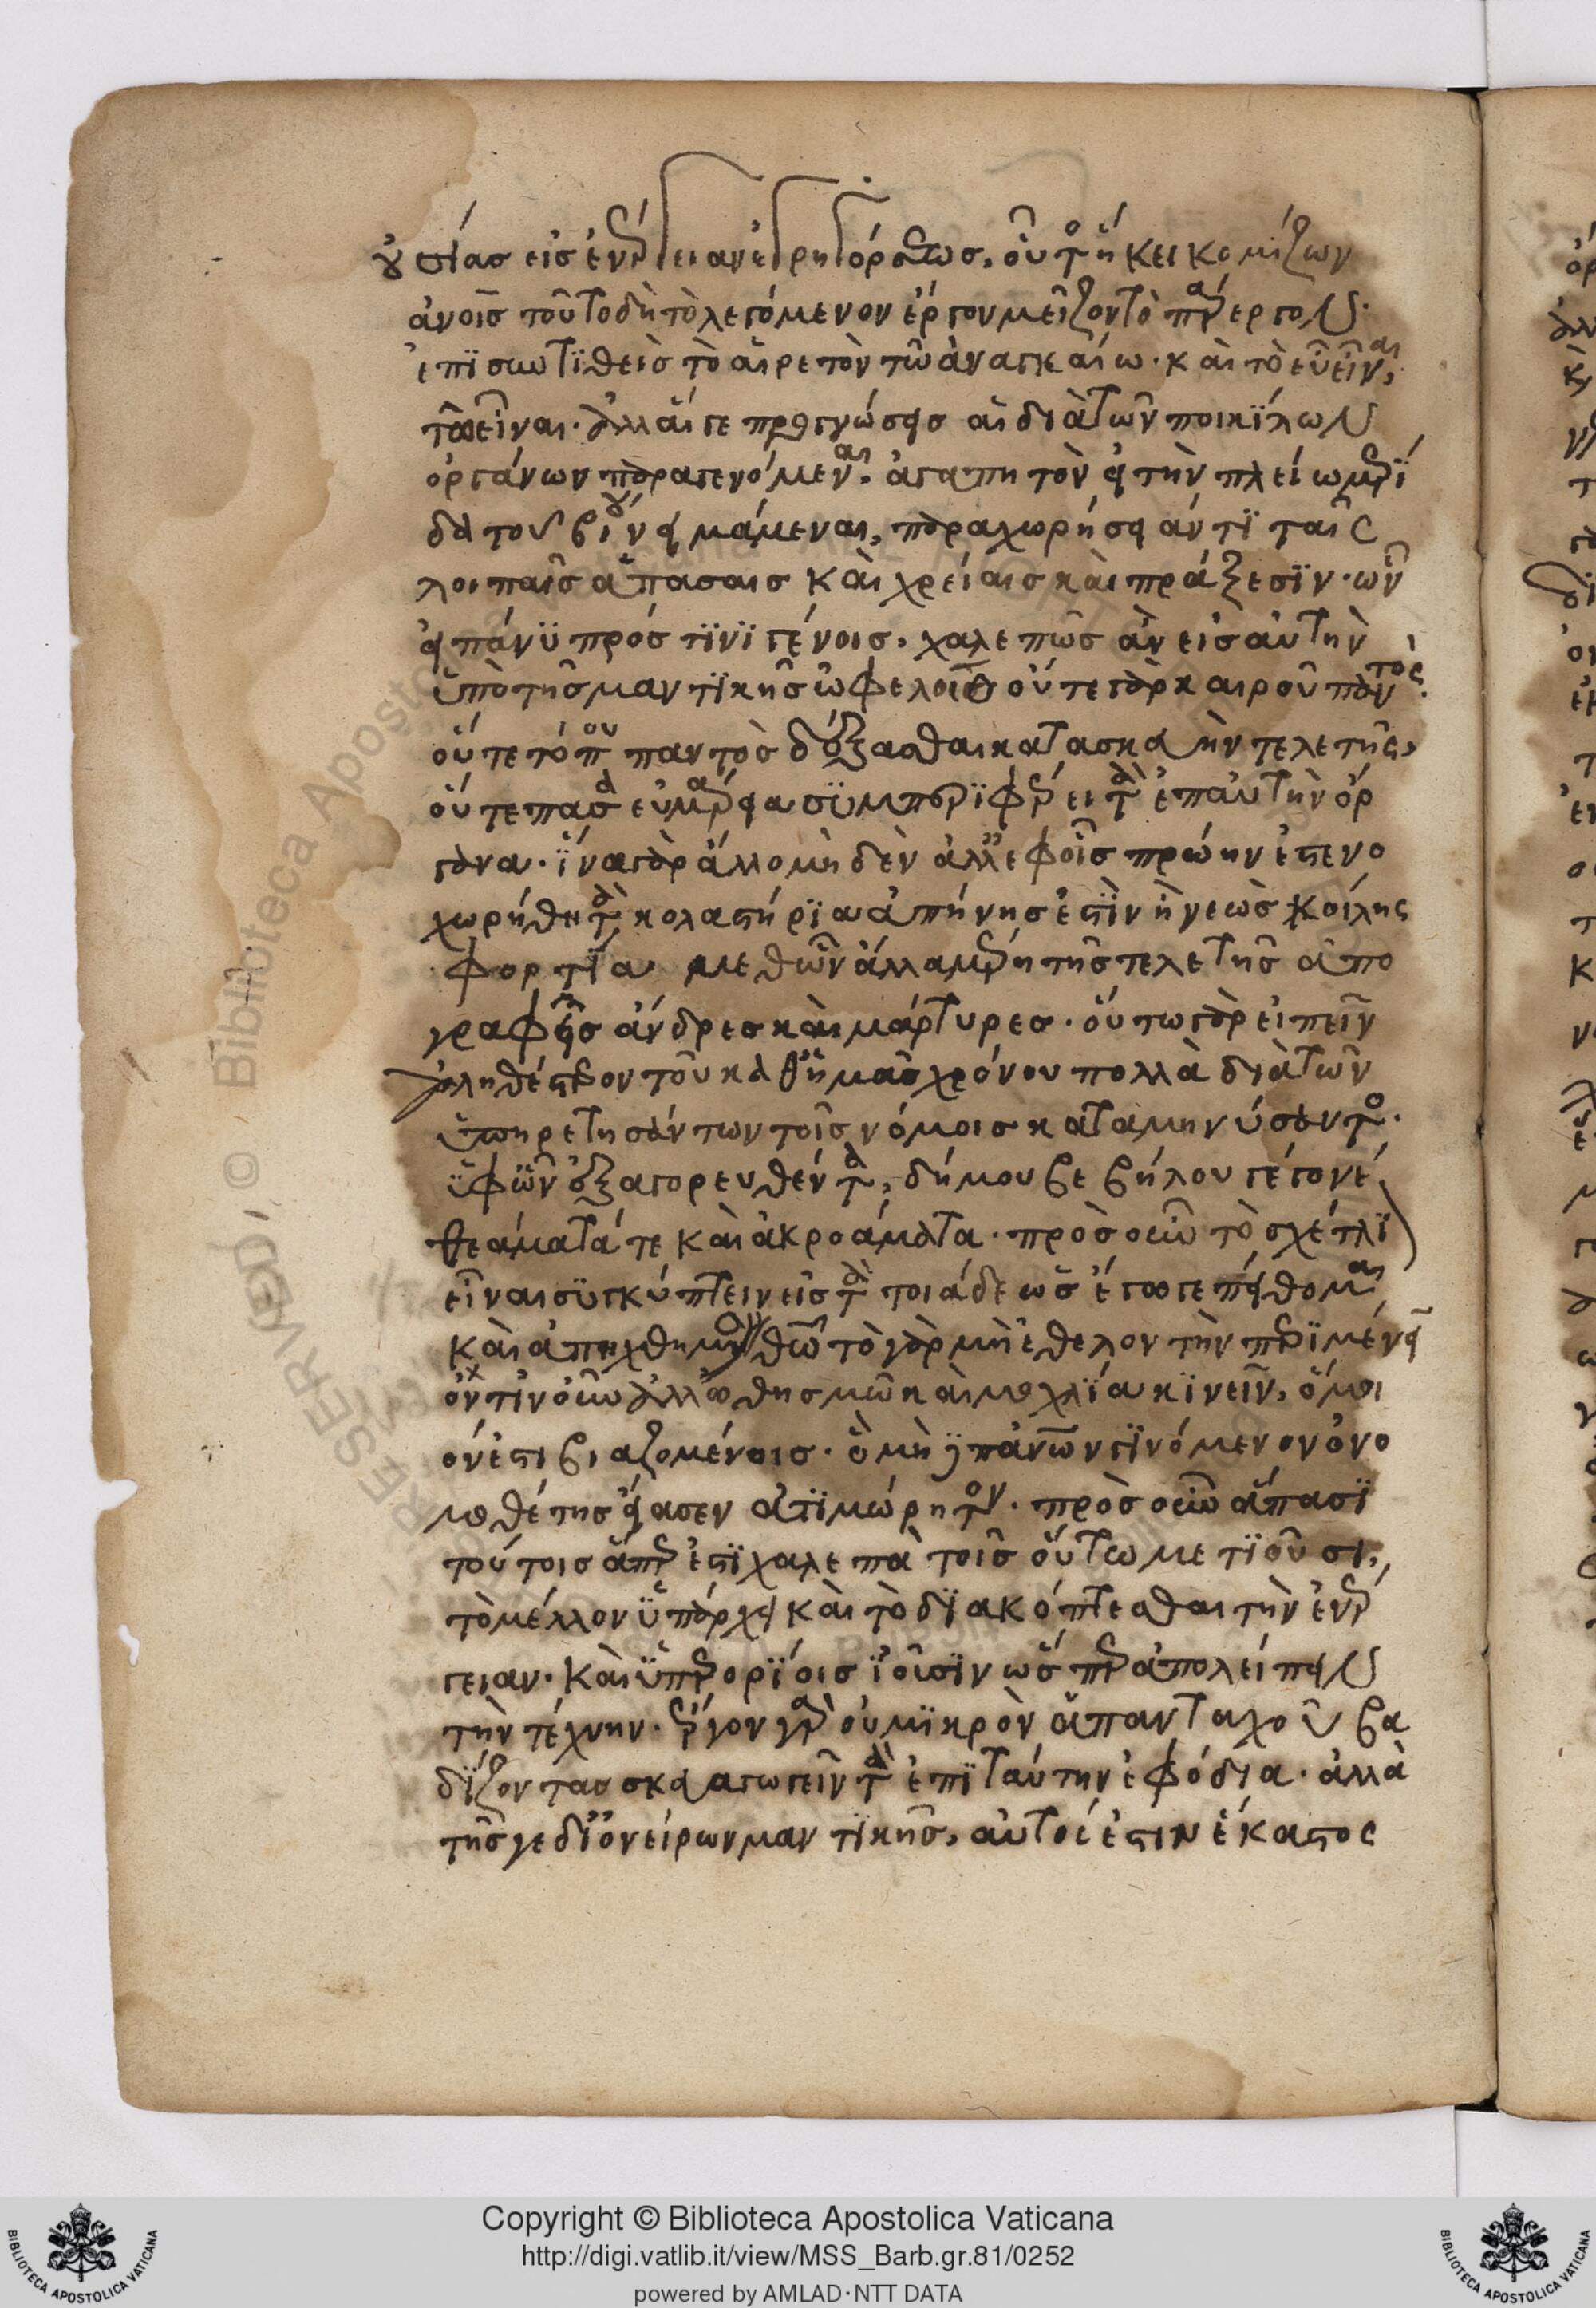 ουσίας εἰς ἐνέργειαν ἐγρηγόρσεως, οὗτος ἥκει κομίζων
ἀνοις τοῦτο δὴ τὸ λεγόμενον ἔργον μεῖζον τὸ πάρεργον·
ἐπισυντιθεὶς τὸ αἱρετὸν τῶ ἀναγκαίω· καὶ τὸ εὖ εἶναι,
τῶ εἶναι· ἀλλ' αἵ γε προγνώσεις αἱ διὰ τῶν ποικίλων
ὀργάνων παραγενόμεναι, ἀγαπητὸν εἰ τὴν πλείω μερί
δα τοῦ βίου νειμάμεναι, παραχωρήσειάν τι ταῖς
λοιπαῖς ἁπάσαις καὶ χρείαις καὶ πράξεσιν· ὧν
εἰ πάνυ πρός τινι γένοις, χαλεπῶς ἂν εἰς αὐτὴν
ὑπὸ τῆς μαντικῆς ὠφελοῖο οὔτε γὰρ καιροῦ παντὸς
οὔτε τόπου παντὸς δέξασθαι κατασκευὴν τελετῆς,
οὔτε πᾶσα εὐμάρεια συμπεριφέρειν τὰ ἐπ' αὐτὴν ὄρ
γανα· ἵνα γὰρ ἄλλο μηδὲν ἀλλ' ἐφ' οἷς πρώην ἐστενο
χωρήθη τὰ κολαστήρια ἀπήνης ἐστὶν ἢ νεὼς κοίλης
φορτία μεθ' ὧν ἄλλα μέρη τῆς τελετῆς ἀπο
γραφεῖς ἄνδρες καὶ μάρτυρες· οὕτω γὰρ εἰπεῖν
ἀληθέστερον τοῦ καθ' ἡμᾶς χρόνου πολλὰ διὰ τῶν
ὑπηρετησάντων τοῖς νόμοις καταμηνύσαντος·
ὑφ' ὧν ἐξαγορευθέντα, δήμου βεβήλου γέγονε
θεάματά τε καὶ ἀκροάματα· πρὸς οὖν τὸ σχέτλι
εἶναι συγκύπτειν εἰς τὰ τοιάδε ὡς ἔγωγε πείθομαι
τὸ γὰρ μὴ ἐθελοντὴν περιμένειν
ὁντινοῦν ἀλλ' ὠθησμῶ καὶ μοχλία κινεῖν, ὅμοι
όν ἐστι βιαζομένοις· ὃ μὴ
μοθέτης εἴασεν ἀτιμώρητον· πρὸς οὖν ἅπασι
τούτοις ἅπερ ἐστὶ χαλεπὰ τοῖς οὕτω μετιοῦσι,
τὸ μέλλον ὑπάρχει καὶ τὸ διακόπτεσθαι τὴν ἐνέρ
γειαν· καὶ ὑπερορίοις ἰοῦσιν ὥσπερ ἀπολείπειν
τὴν τέχνην· ἔργον γὰρ οὐ μικρὸν ἁπανταχοῦ βα
δίζοντας σκευαγωγεῖν τὰ ἐπὶ ταύτην ἐφόδια· ἀλλὰ
τῆς γε δι' ὀνείρων μαντικῆς, αὐτός ἐστιν ἕκαστος
Copyright © Biblioteca Apostolica Vaticana
http://digi.vatlib.it/view/MSS_Barb.gr.81/0252
powered by AMLAD·NTT DATA
BIBLIOTECA APOSTOLICA VATICANA
BIBLIOTECA APOSTOLICA VATICANA